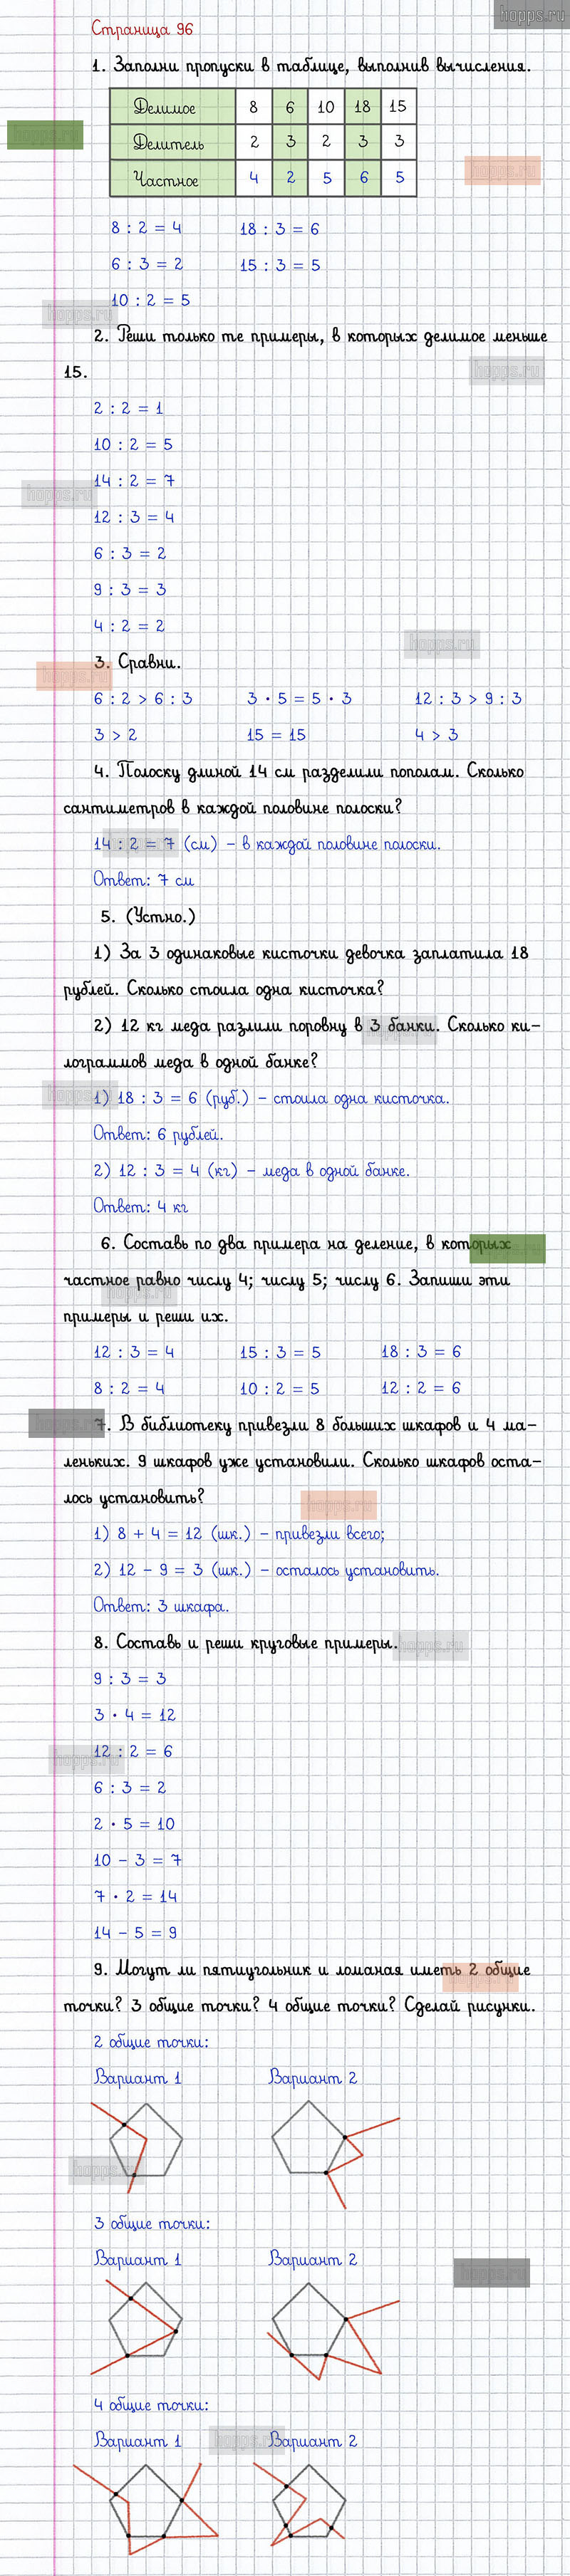 hopps.ru
Страница 96
1. Заполни пропуски в таблице, выполнив вычисления.
Делимое 8 6 10 18 15
Делитель 2 3 2 3 3
Частное 4 2 5 6 5
8 : 2 = 4 18 : 3 = 6
6 : 3 = 2 15 : 3 = 5
10 : 2 = 5
2. Реши только те примеры, в которых делимое меньше
15.
2 : 2 = 1
10 : 2 = 5
14 : 2 = 7
12 : 3 = 4
6 : 3 = 2
9 : 3 = 3
4 : 2 = 2
3. Сравни.
6 : 2 > 6 : 3 3 · 5 = 5 · 3 12 : 3 > 9 : 3
3 > 2 15 = 15 4 > 3
4. Полоску длиной 14 см разделили пополам. Сколько
сантиметров в каждой половине полоски?
14 : 2 = 7 (см) – в каждой половине полоски.
Ответ: 7 см
5. (Устно.)
1) За 3 одинаковые кисточки девочка заплатила 18
рублей. Сколько стоила одна кисточка?
2) 12 кг меда разлили поровну в 3 банки. Сколько ки–
лограммов меда в одной банке?
1) 18 : 3 = 6 (руб.) – стоила одна кисточка.
Ответ: 6 рублей.
2) 12 : 3 = 4 (кг) – меда в одной банке.
Ответ: 4 кг
6. Составь по два примера на деление, в которых
частное равно числу 4; числу 5; числу 6. Запиши эти
примеры и реши их.
12 : 3 = 4 15 : 3 = 5 18 : 3 = 6
8 : 2 = 4 10 : 2 = 5 12 : 2 = 6
7. В библиотеку привезли 8 больших шкафов и 4 ма–
леньких. 9 шкафов уже установили. Сколько шкафов оста–
лось установить?
1) 8 + 4 = 12 (шк.) – привезли всего;
2) 12 – 9 = 3 (шк.) – осталось установить.
Ответ: 3 шкафа.
8. Составь и реши круговые примеры.
9 : 3 = 3
3 · 4 = 12
12 : 2 = 6
6 : 3 = 2
2 · 5 = 10
10 – 3 = 7
7 · 2 = 14
14 – 5 = 9
9. Могут ли пятиугольник и ломаная иметь 2 общие
точки? 3 общие точки? 4 общие точки? Сделай рисунки.
2 общие точки:
Вариант 1 Вариант 2
3 общие точки:
Вариант 1 Вариант 2
4 общие точки:
Вариант 1 Вариант 2